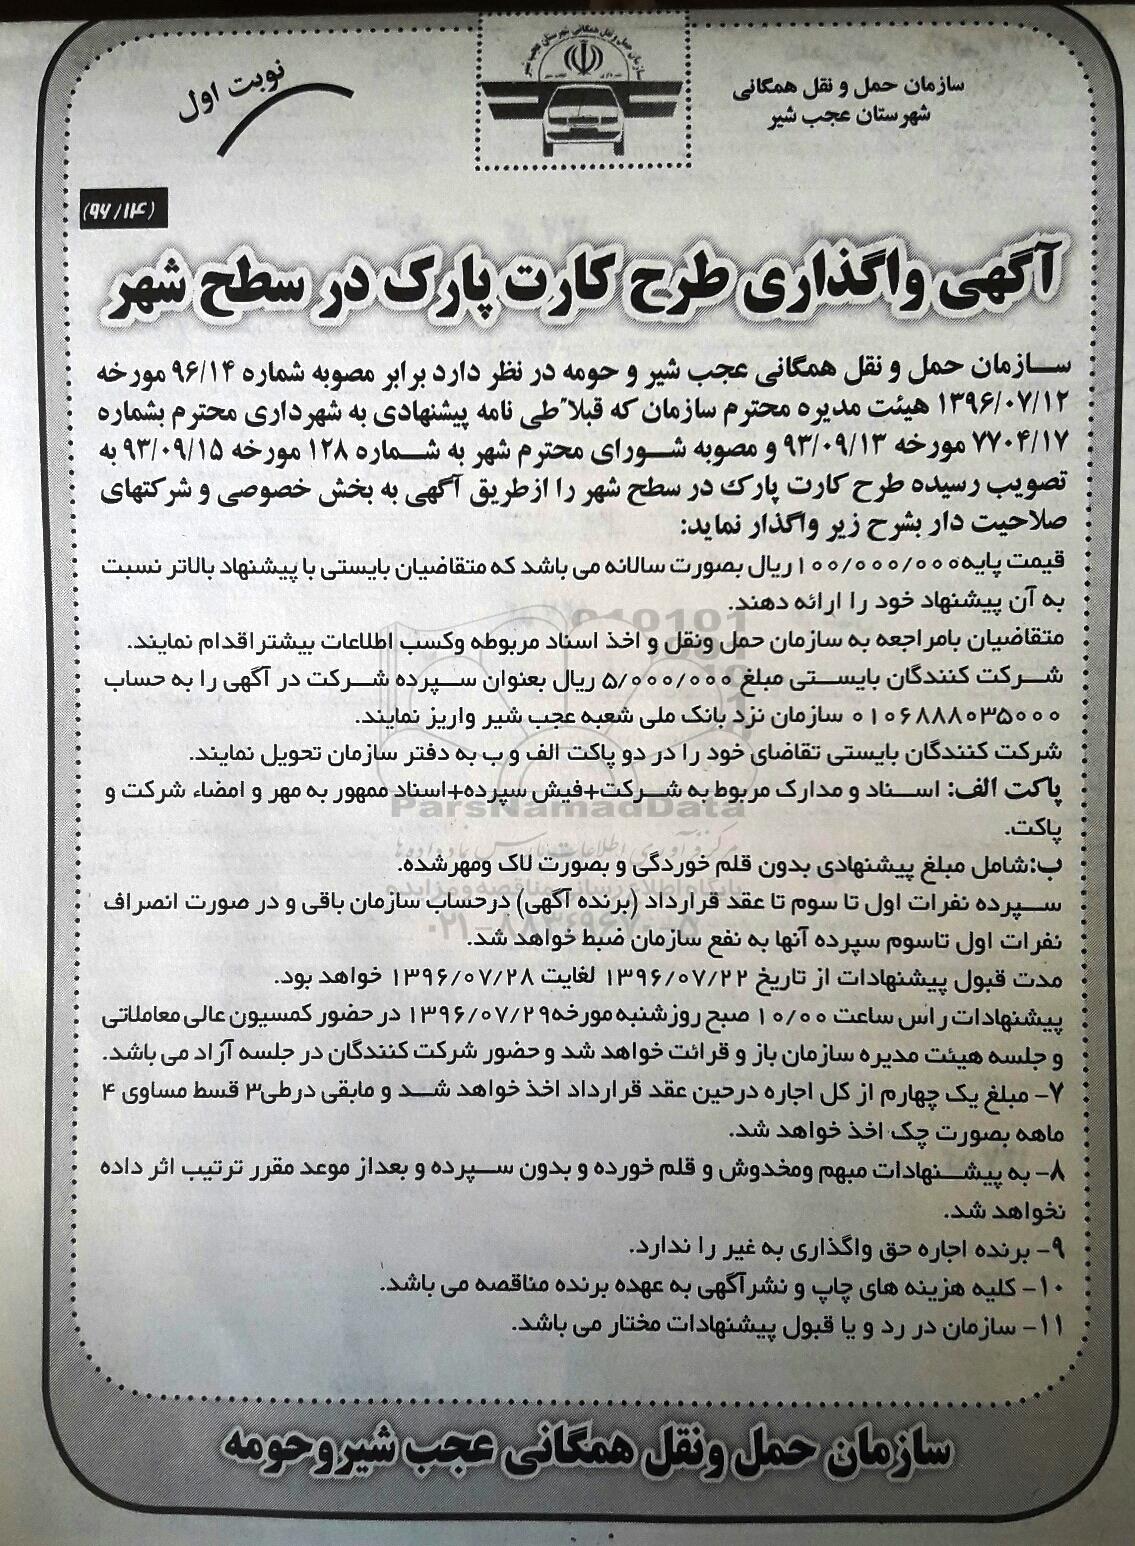 سازمان حمل و نقل همگانی
شهرستان عجب شیر
نوبت اول
(۹۶/۱۴)
آگهی واگذاری طرح کارت پارک در سطح شهر
سازمان حمل و نقل همگانی عجب شیر و حومه در نظر دارد برابر مصوبه شماره ۹۶/۱۴ مورخه
۱۳۹۶/۰۷/۱۲ هیئت مدیره محترم سازمان که قبلاً طی نامه پیشنهادی به شهرداری محترم بشماره
۷۷۰۴/۱۷ مورخه ۹۳/۰۹/۱۳ و مصوبه شورای محترم شهر به شماره ۱۲۸ مورخه ۹۳/۰۹/۱۵ به
تصویب رسیده طرح کارت پارک در سطح شهر را از طریق آگهی به بخش خصوصی و شرکتهای
صلاحیت دار بشرح زیر واگذار نماید:
قیمت پایه ۱۰۰/۰۰۰/۰۰۰ ریال بصورت سالانه می باشد که متقاضیان بایستی با پیشنهاد بالاتر نسبت
به آن پیشنهاد خود را ارائه دهند.
متقاضیان بامراجعه به سازمان حمل ونقل و اخذ اسناد مربوطه وکسب اطلاعات بیشتر اقدام نمایند.
شرکت کنندگان بایستی مبلغ ۵/۰۰۰/۰۰۰ ریال بعنوان سپرده شرکت در آگهی را به حساب
۰۱۰۶۸۸۸۰۳۵۰۰۰ سازمان نزد بانک ملی شعبه عجب شیر واریز نمایند.
شرکت کنندگان بایستی تقاضای خود را در دو پاکت الف و ب به دفتر سازمان تحویل نمایند.
پاکت الف: اسناد و مدارک مربوط به شرکت+فیش سپرده+اسناد ممهور به مهر و امضاء شرکت و
پاکت.
ب:شامل مبلغ پیشنهادی بدون قلم خوردگی و بصورت لاک ومهرشده.
سپرده نفرات اول تا سوم تا عقد قرارداد (برنده آگهی) درحساب سازمان باقی و در صورت انصراف
نفرات اول تاسوم سپرده آنها به نفع سازمان ضبط خواهد شد.
مدت قبول پیشنهادات از تاریخ ۱۳۹۶/۰۷/۲۲ لغایت ۱۳۹۶/۰۷/۲۸ خواهد بود.
پیشنهادات راس ساعت ۱۰/۰۰ صبح روز شنبه مورخه ۱۳۹۶/۰۷/۲۹ در حضور کمسیون عالی معاملاتی
و جلسه هیئت مدیره سازمان باز و قرائت خواهد شد و حضور شرکت کنندگان در جلسه آزاد می باشد.
۷- مبلغ یک چهارم از کل اجاره درحین عقد قرارداد اخذ خواهد شد و مابقی درطی ۳ قسط مساوی ۴
ماهه بصورت چک اخذ خواهد شد.
۸- به پیشنهادات مبهم ومخدوش و قلم خورده و بدون سپرده و بعداز موعد مقرر ترتیب اثر داده
نخواهد شد.
۹- برنده اجاره حق واگذاری به غیر را ندارد.
۱۰- کلیه هزینه های چاپ و نشر آگهی به عهده برنده مناقصه می باشد.
۱۱- سازمان در رد و یا قبول پیشنهادات مختار می باشد.
سازمان حمل ونقل همگانی عجب شیروحومه
ParsNamadData
پایگاه اطلاع رسانی مناقصه و مزایده